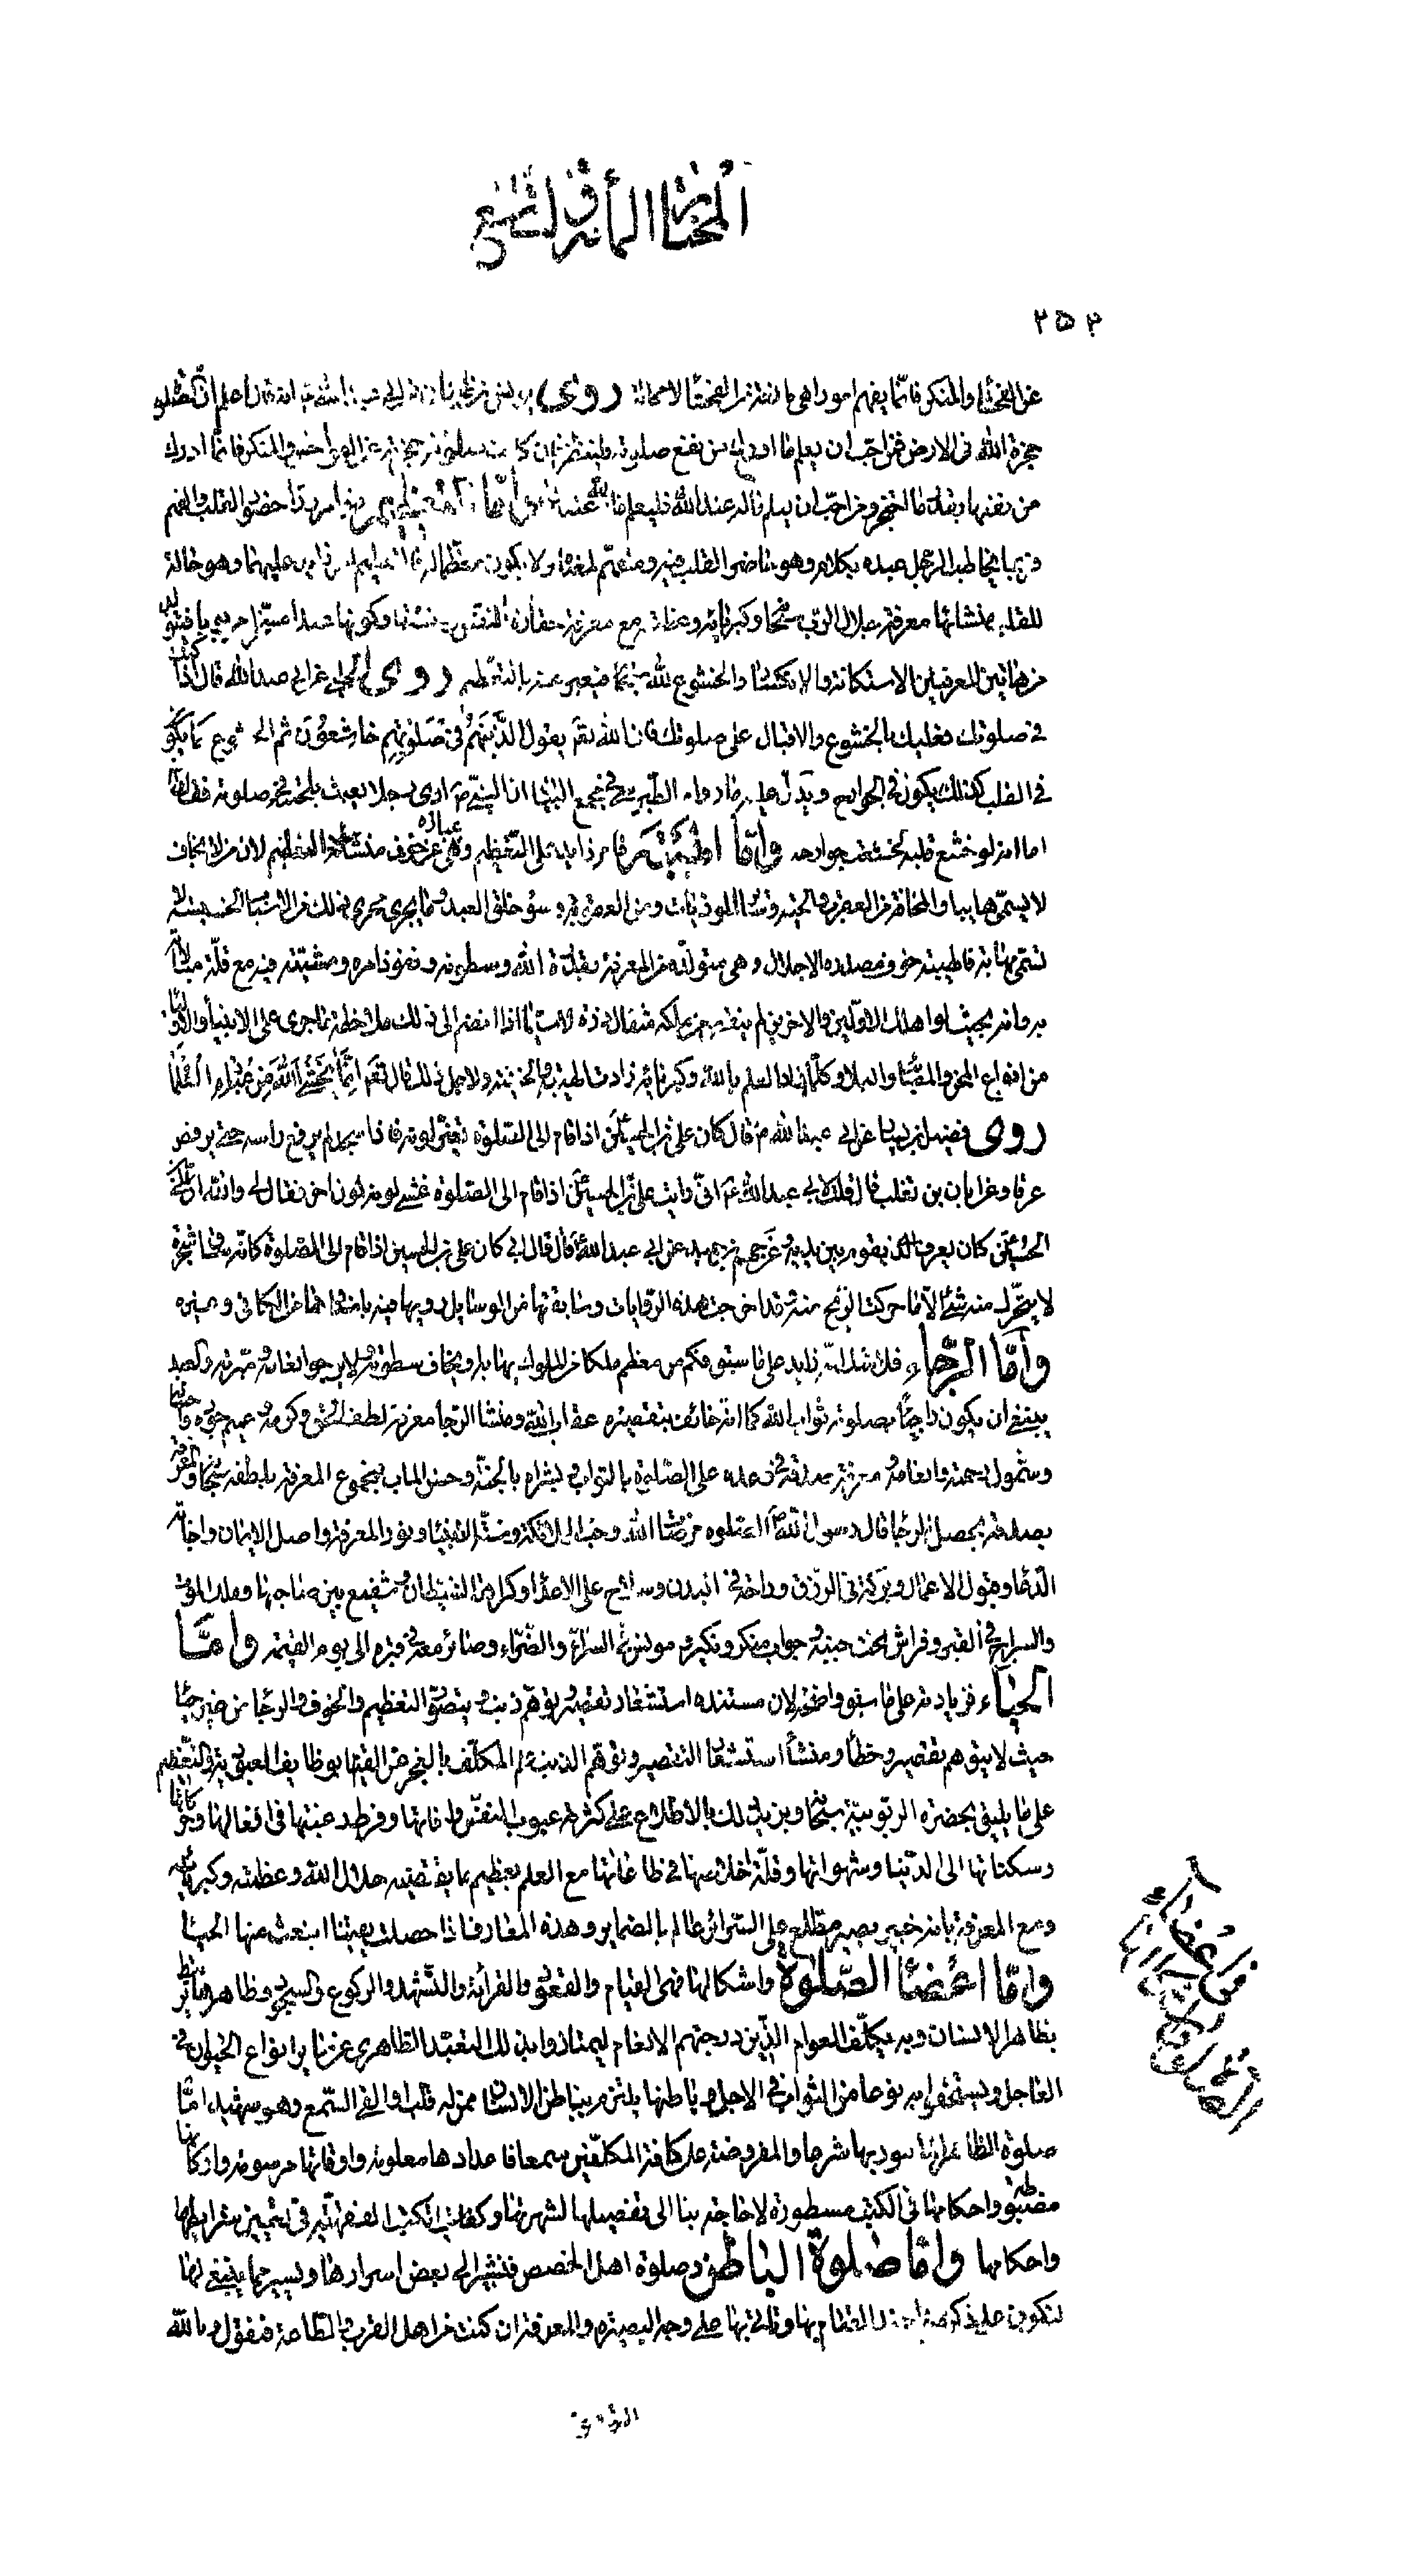 المختار المأة والتاسع
٢٥٢
عن الفحشاء والمنكر فانما يفهم امورا هي مانعة من الفحشاء لا محالة روى يونس بن ظبيان عن ابي عبد الله انه قال اعلم ان الصلوة
حجزة الله في الارض فمن احب ان يعلم ما ادرك من نفع صلوته فلينظر فان كانت صلوته حجزته عن الفواحش والمنكر فانما ادرك
من نفعها بقدر ما احتجز ومن احب ان يعلم ماله عند الله فليعلم ما لله عنده وأما التعظيم فهو امر وراء حضور القلب والفهم
وربما يخاطب الرجل عبده بكلام وهو حاضر القلب فيه ومتفهم لمعناه ولا يكون معظما له فالتعظيم امر زايد عليهما وهو حالة
للقلب منشاها معرفة جلال الرب سبحانه وكبريائه وعظمته مع معرفة حقارة النفس وخستها وكونها عبدا مسخرا مربوبا فيتولد
من هاتين المعرفتين الاستكانة والانكسار والخشوع لله سبحانه فيعبر عنه بالتعظيم روى الحلبي عن ابي عبد الله قال اذا كنت
في صلوتك فعليك بالخشوع والاقبال على صلوتك فان الله تعالى يقول الذين هم في صلوتهم خاشعون ثم الخشوع كما يكون
في القلب كذلك يكون في الجوارح ويدل عليه ما رواه الطبرسي في مجمع البيان ان النبي ص راى رجلا يعبث بلحيته في صلوته فقال
اما انه لو خشع قلبه لخشعت جوارحه وأما الهيبة فامر زايد على التعظيم وهي عبارة عن خوف منشأه التعظيم لان من لا يخاف
لا يسمى هايبا والمخافة من العقرب والحية وساير الموذيات ومن العقوبة وسوء خلق العبد وما يجري مجرى ذلك من الاسباب الخسيسة لا
تسمى مهابة فالهيبة خوف مصدره الاجلال وهي متولدة من المعرفة بقدرة الله وسطوته ونفوذ امره ومشيته فيه مع قلة مبالاته
به وانه بحيث لو اهلك الاولين والاخرين لم ينقص من ملكه مثقال ذرة لا سيما اذا انضم الى ذلك ملاحظة ما جرى على الانبياء والاولياء
من انواع المحن والمصائب والبلاء وكلما زاد العلم بالله وكبريائه زادت الهيبة والخشية ولاجل ذلك قال تعالى إنما يخشى الله من عباده العلماء
روى فضيل بن يسار عن ابي عبد الله ع قال كان علي بن الحسين اذا قام الى الصلوة تغير لونه فاذا سجد لم يرفع رأسه حتى يرفض
عرقا وعن ابان بن تغلب قال قلت لابي عبد الله ع اني رايت علي بن الحسين اذا قام الى الصلوة غشى لونه لون اخر فقال لي والله ان علي بن
الحسين كان يعرف الذي يقوم بين يديه وعن جهم بن حميد عن ابي عبد الله قال قال ابي كان علي بن الحسين اذا قام الى الصلوة كانه ساق شجرة
لا يتحرك منه شئ الا ما حركت الريح منه وقد اخرجت هذه الروايات وسابقتها من الوسايل رويها فيه باسنادها عن الكافي وغيره
وأما الرجاء فلا شك انه زايد على ما سبق فكم من معظم ملكا من الملوك يهابه ويخاف سطوته ولا يرجو انعامه ومبرته والعبد
ينبغي ان يكون راجيا بصلوته ثواب الله كما انه خائف بتقصيره عقاب الله ومنشا الرجا معرفة لطف الحق وكرمه وعميم جوده واحسانه
وشمول رحمته وانعامه ومعرفة صدقه في وعده على الصلوة بالثواب وبشراه بالجنة وحسن الماب فبمجموع المعرفة بلطفه سبحانه والمعرفة
بصدقه يحصل الرجا قال رسول الله الصلوة مرضات الله وحب الملائكة وسنة الانبياء ونور المعرفة واصل الايمان واجابة
الدعا وقبول الاعمال وبركة في الرزق وراحة في البدن وسلاح على الاعدا وكراهة الشيطان وشفيع بين صاحبها وملك الموت
والسراج في القبر وفراش تحت جنبيه وجواب منكر ونكير ومونس في السراء والضراء وصائر معه في قبره الى يوم القيمة وأما
الحياء فزيادته على ما سبق واضحة لان مستنده استشعار تقصير وتوهم ذنب ويتصور التعظيم والخوف والرجا من غير حيا
حيث لا يتوهم تقصير وخطأ ومنشأ استشعار التقصير وتوهم الذنب علم المكلف بالعجز عن القيام بوظايف العبودية والتعظيم
على ما يليق بحضرة الربوبية سبحانه ويزيد ذلك بالاطلاع على كثرة عيوب النفس وافاتها وفرط رغبتها في افعالها وحركاتها
وسكناتها الى الدنيا وشهواتها وقلة اخلاصها في طاعاتها مع العلم بعظيم ما يقتضيه جلال الله وعظمته وكبريائه
ومع المعرفة بانه خبير بصير مطلع على السرائر عالم بالضماير وهذه المعارف اذا حصلت يقينا انبعث منها الحيا
وأما أعضاء الصلوة واشكالها فهي القيام والقعود والقرائة والتشهد والركوع والسجود وظاهرها يرتبط
بظاهر الانسان وبه يكلف العوام الذين درجتهم الانعام ليمتازوا بذلك التعبد الظاهري عن ساير انواع الحيوان في
العاجل ويستحقوا به نوعا من الثواب في الاجل وباطنها يلتزم بباطن الانسان ممن له قلب او القى السمع وهو شهيد اما
صلوة الظاهر فالمامور بها شرعا والمفروضة على كافة المكلفين سمعا فاعدادها معلومة واوقاتها مرسومة واركانها
مضبوطة واحكامها في الكتب مسطورة لا حاجة بنا الى تفصيلها لشهرتها وكفاية الكتب الفقهية في تعيين شرايطها
واحكامها وأما صلوة الباطن وصلوة اهل الخصوص فنشير الى بعض اسرارها ويسير مما ينبغي لها
لتكون على ذكر عند القيام بها وتاتي بها على وجه البصيرة والمعرفة ان كنت من اهل القرب والطاعة فنقول وبالله
التوفيق